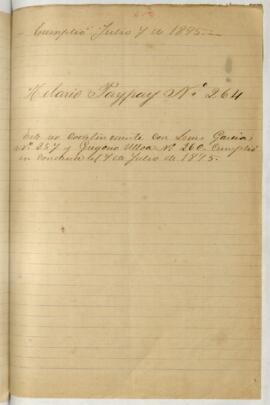 Cumplió Julio 7 de 1895.
Hilario Paypay Nº 264
Este reo con Luis Garcia
Nº 257 y Gregorio Ulloa Nº 260 Cumplió
su condena el 7 de Julio de 1895.